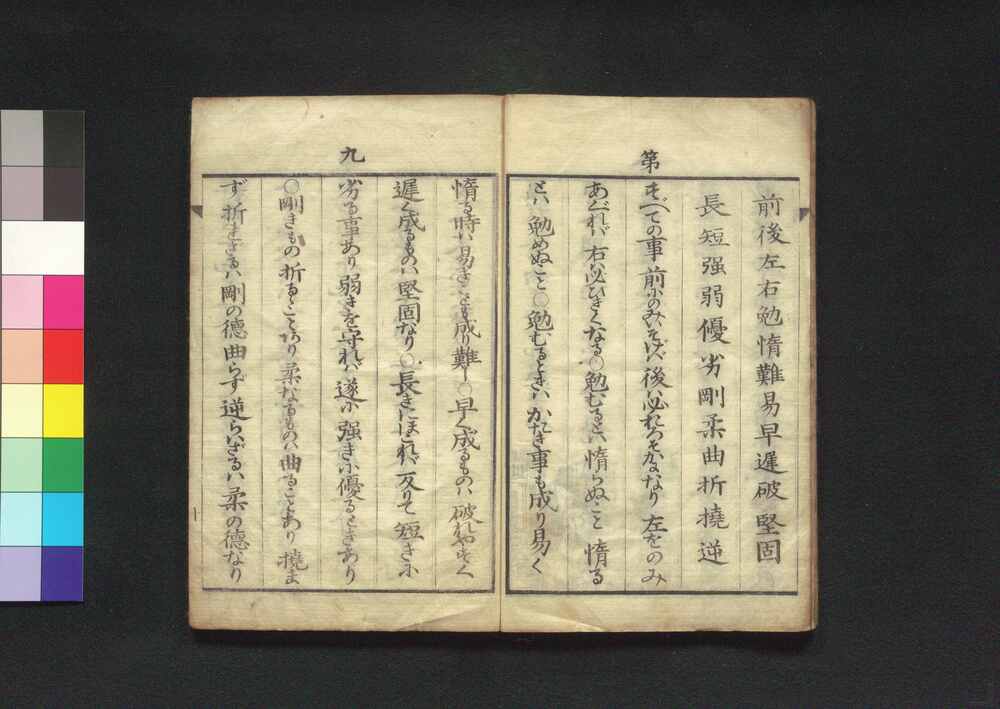 第
前後左右勉惰難易早遅破堅固
長短强弱優劣剛柔曲折撓逆
すべての事前にのみいそげバ後ハ必おろそかになり左をのみ
あぐれバ右ハ必ひきくなる○勉むるとハ惰らぬこと惰る
とハ勉めぬこと○勉むるときハかたき事も成り易く
九
惰る時ハ易きことも成り難し○早く成るものハ破れやすく
遅く成るものハ堅固なり○長きにほこれバ反りて短きに
劣る事あり弱きを守れバ遂に强きに優るときあり
○剛きもの折るゝことあり柔なるものハ曲ることあり撓ま
ず折れざるハ剛の徳曲らず逆らハざるハ柔の徳なり